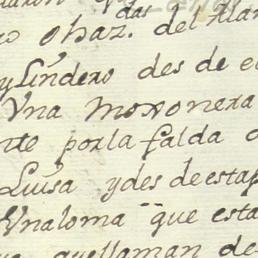 das
ohaz. del Alar
y Lindero des de el
Una moxonera
nte porla falda
Luisa ydes de estap
Unaloma que esta
quellaman de